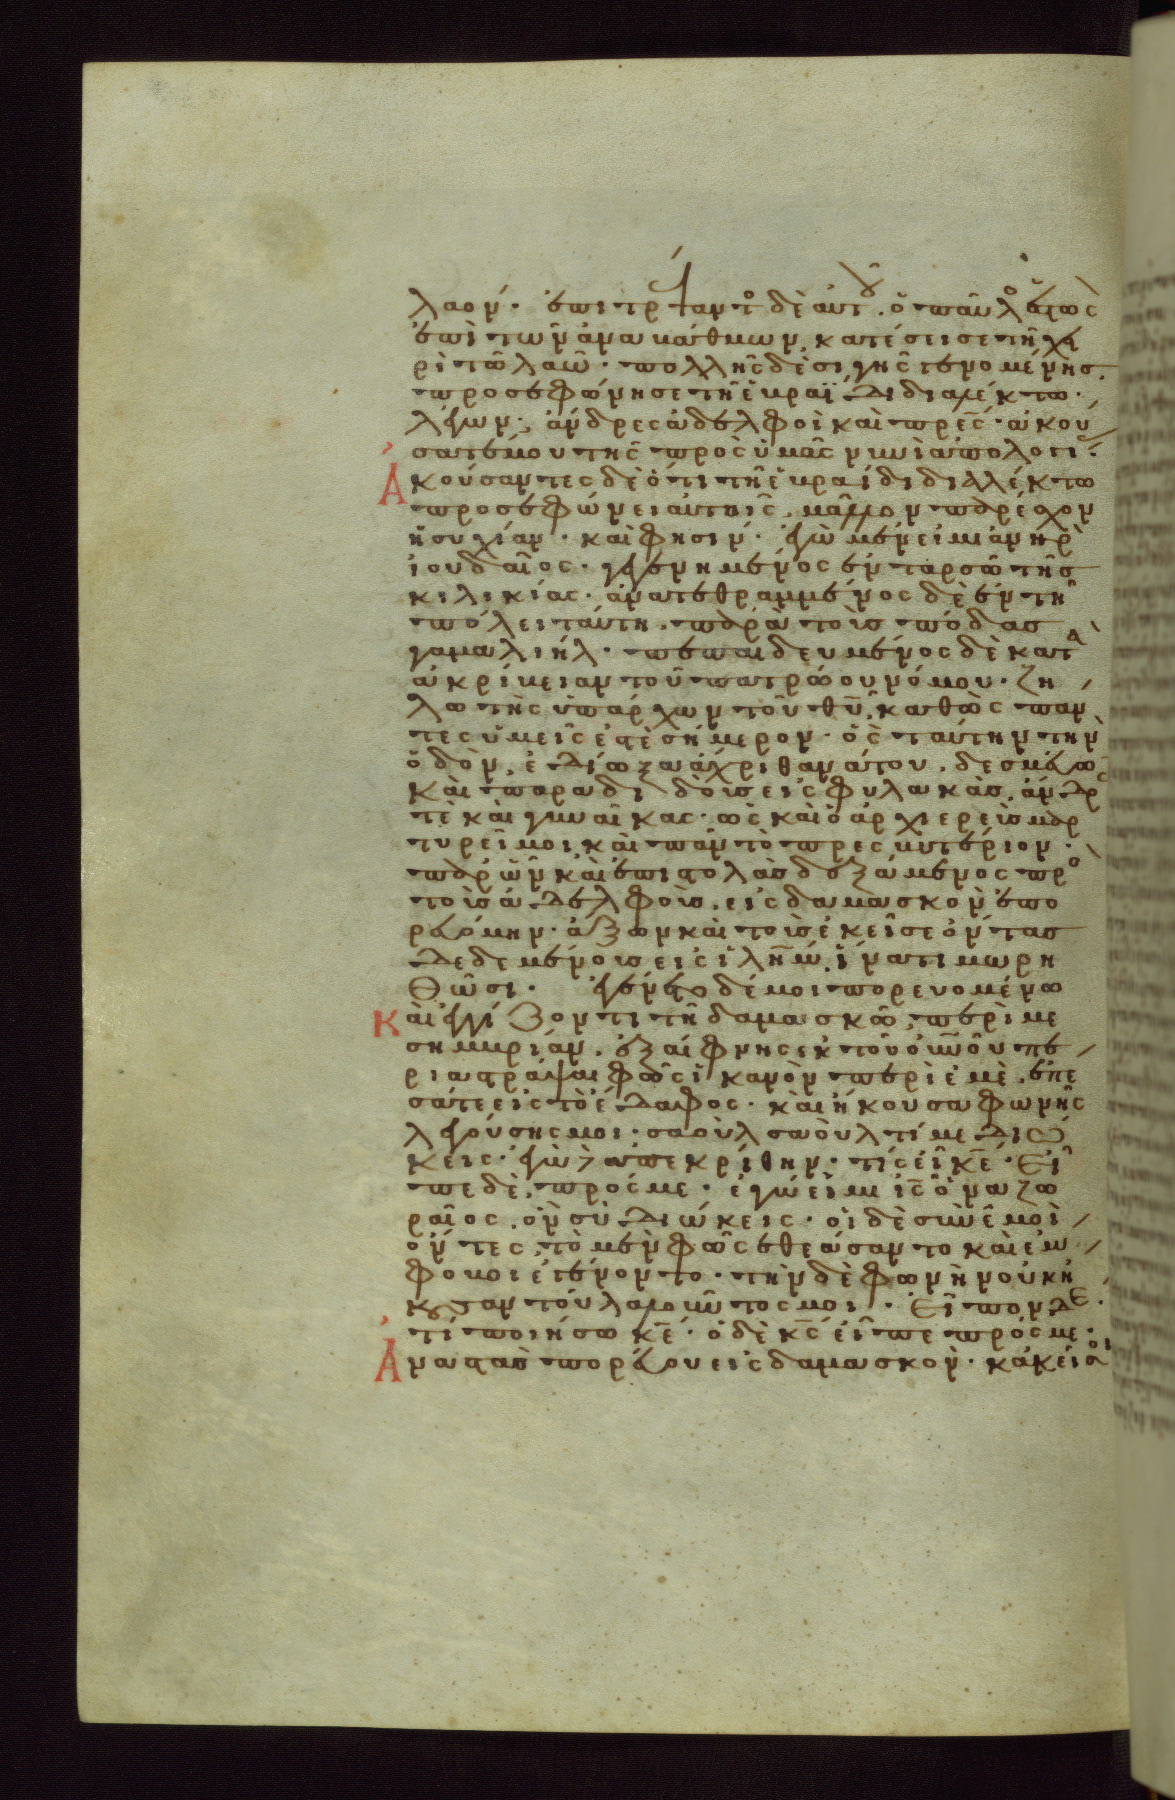 λαόν. ἐπιτρέψαντος δὲ αὐτοῦ. ὁ παῦλος ἑστὼς
ἐπὶ τῶν ἀναβαθμων, κατέσεισε τῆ χει
ρὶ τῶ λαῶ. πολλῆς δὲ σιγῆς γενομένης.
προσεφώνησε τῆ ἑβραΐδι διαλέκτω.
λέγων. ἄνδρες ἀδελφοὶ καὶ πρες. ἀκού
σατέ μου τῆς πρὸς ὑμᾶς νυνὶ ἀπολογί.
Ἀκούσαντες δὲ ὅτι τῆ ἑβραίδι διαλέκτω
προσεφώνει αὐτοῖς, μᾶλλον παρέσχον
ἡσυχίαν. καὶ φησίν. ἐγὼ μέν εἰμι ἀνὴρ
ἰουδαῖος. γεγενημένος ἐν ταρσῶ τῆς
κιλικίας. ἀνατεθραμμένος δὲ ἐν τῆ
πόλει ταύτη. παρὰ τοὺς πόδας
γαμαλιήλ. πεπαιδευμένος δὲ κατὰ
ἀκρίβειαν τοῦ πατρώου νόμου. ζη
λωτὴς ὑπάρχων τοῦ θυ, καθὼς πάν
τες ὑμεῖς ἐστὲ σήμερον. ὃς ταύτην τὴν
ὁδὸν, ἐδίωξα ἄχρι θανάτου. δεσμεύω
καὶ παραδιδοὺς εἰς φυλακὰς. ἄνδρ
τὲ καὶ γυναῖκας. ὡς καὶ ὁ ἀρχιερεὺς μαρ
τυρεῖ μοι καὶ πᾶν τὸ πρεσβυτέριον.
παρ ὧν καὶ ἐπιστολὰς δεξάμενος πρὸ
τοὺς ἀδελφοὺς. εἰς δαμασκὸν ἐπο
ρευόμην. ἄξων καὶ τοὺς ἐκεῖσε ὄντας
δεδεμένους εἰς ιλημ, ἵνα τιμωρη
θῶσι. ἐγένετο δέ μοι πορευομένω
Καὶ ἐγγίζοντι τῆ δαμασκῶ, περὶ με
σημβρίαν. ἐξαίφνης ἐκ τοῦ ουνου πε
ριαστράψαι φῶς ἱκανὸν περὶ ἐμὲ. ἔπε
σά τε εἰς τὸ ἔδαφος. καὶ ἤκουσα φωνῆς
λεγούσης μοι. σαοὺλ σαοὺλ τί με διώ
κεις. ἐγὼ δὲ ἀπεκρίθην. τίς εἶ κε. Εἶ
πε δὲ, πρός με. ἐγώ εἰμι ις ὁ ναζω
ραῖος, ὃν σὺ διώκεις. οἱ δὲ σὺν ἐμοὶ
ὄντες, τὸ μὲν φῶς ἐθεάσαντο καὶ ἔμ
φοβοι ἐγένοντο. τὴν δὲ φωνὴν οὐκ ἤ
κουσαν τοῦ λαλοῦντος μοι. Εἶπον δὲ.
τί ποιήσω κε. ὁ δὲ κς εἶπε πρός με.
Ἀναστὰς πορεύου εἰς δαμασκὸν. κἀκεῖ σοι